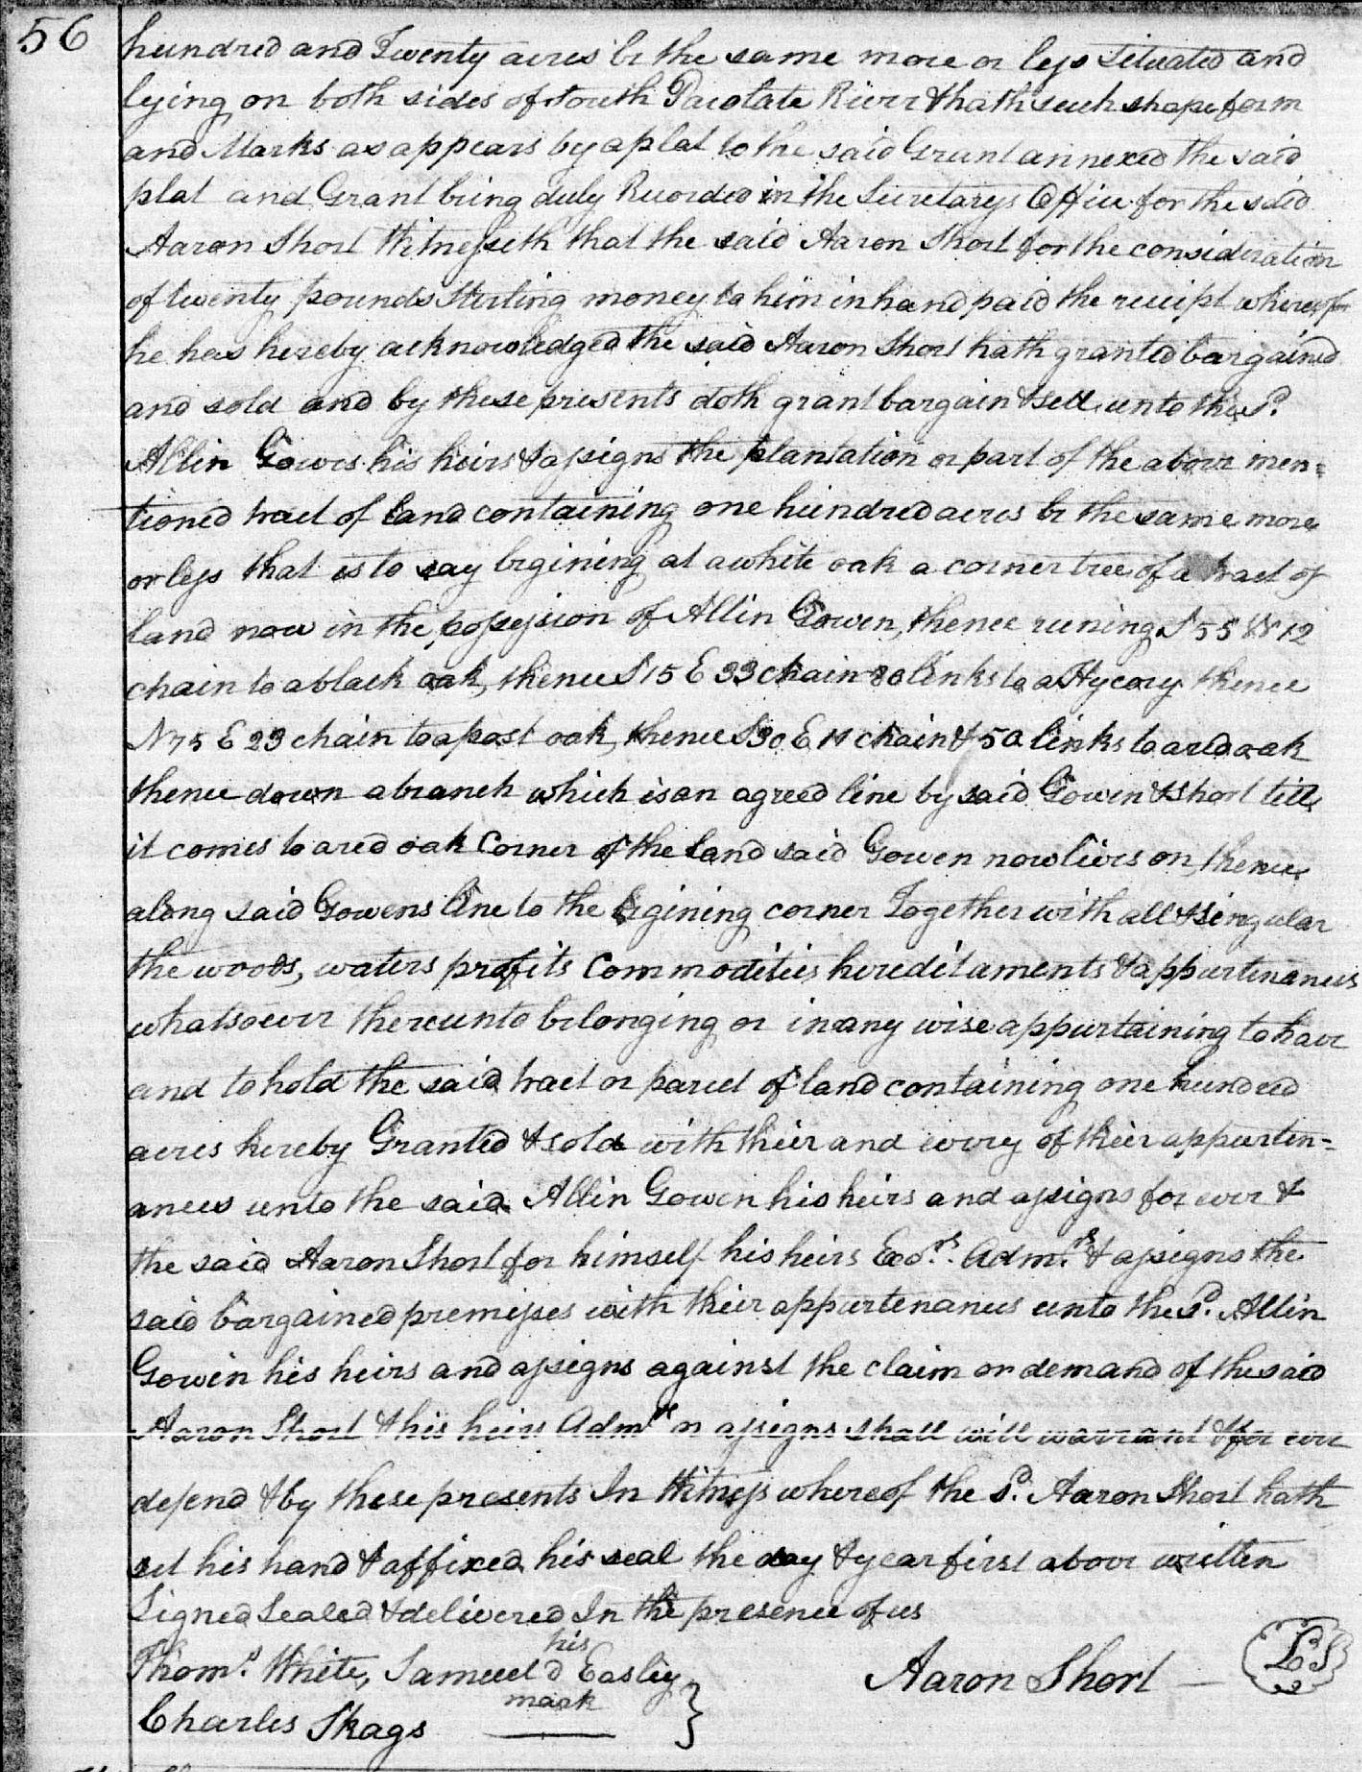 56
hundred and Twenty acres be the same more or less situated and
lying on both sides of South Pacolate River & hath such shape form
and Marks as appears by a plat to the said Grant annexed the said
plat and Grant being duly Recorded in the Secretarys Office for the said
Aaron Short Witnesseth that the said Aaron Short for the consideration
of twenty pounds Sterling money to him in hand paid the receipt whereof
he has hereby acknowledged the said Aaron Short hath granted bargained
and sold and by these presents doth grant bargain & sell unto the Sd.
Allin Gowen his heirs & assigns the plantation or part of the above men=
tioned tract of land containing one hundred acres be the same more
or less that is to say begining at a white oak a corner tree of a tract of
land now in the possession of Allin Gowen, thence runing S 55 W 12
chain to a black oak, thence S 15 E 33 chain 80 links to a Hycory thence
N 75 E 23 chain to a post oak, thence S 30 E 11 chain & 50 links to a red oak
thence down a branch which is an agreed line by said Gowen & Short till
it comes to a red oak Corner of the land said Gowen now lives on, thence
along said Gowens line to the begining corner Together with all & singular
the woods, waters profits Commodities hereditaments & appurtenances
whatsoever thereunto belonging or in any wise appurtaining to have
and to hold the said tract or parcel of land containing one hundred
acres hereby Granted & sold with their and every of their appurten=
ances unto the said Allin Gowen his heirs and assigns for ever &
the said Aaron Short for himself his heirs Exors. Admrs. & assigns the
said bargained premisses with their appurtenances unto the Sd. Allin
Gowin his heirs and assigns against the claim or demand of the said
Aaron Short & his heirs Admrs or assigns shall will warrant & for ever
defend & by these presents In Witness whereof the Sd. Aaron Short hath
set his hand & affixed his seal the day & year first above written
Signed Sealed & delivered In the presence of us
his
Thoms. White, Samuel d Easley Aaron Short — LS
mark
Charles Skags